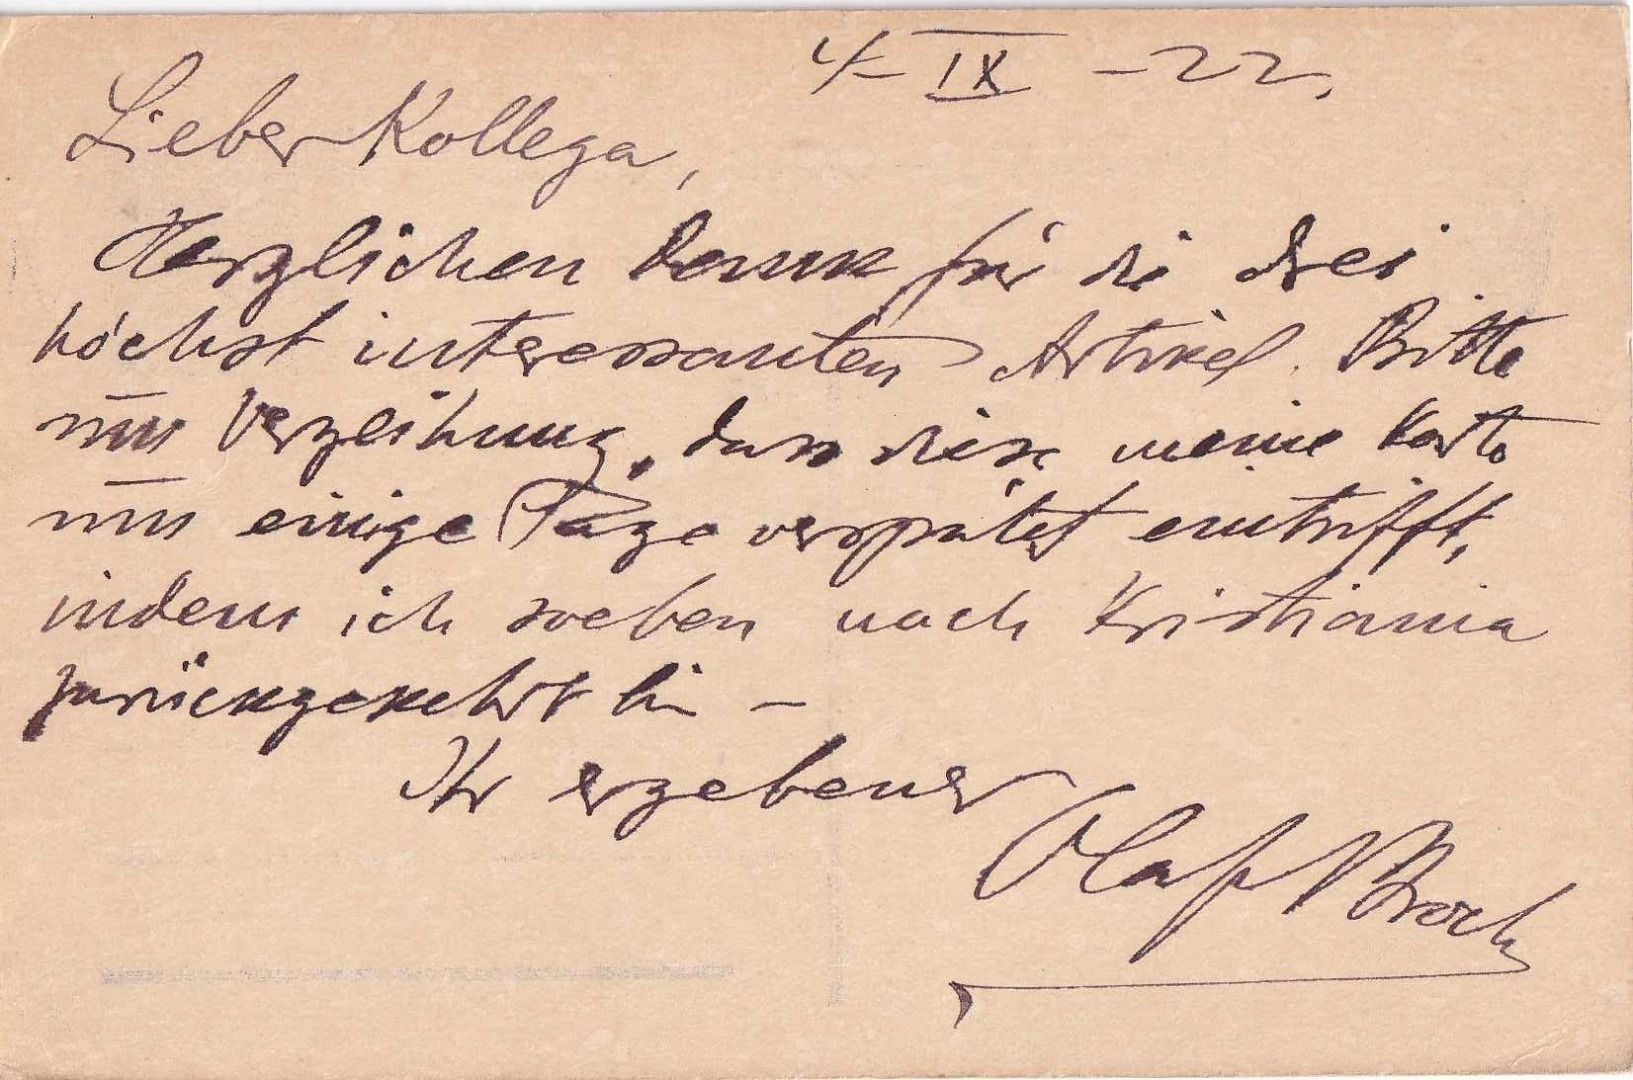 4 - IX - 22.
Lieber Kollega,
Herzlichen Dank für die drei
höchst interessanten Artikel. Bitte
um Verzeihung, dass diese meine Karte
um einige Tage verspätet eintrifft,
indem ich soeben nach Kristiania
zurückgekehrt bin –
Ihr ergebener
Olaf Broch